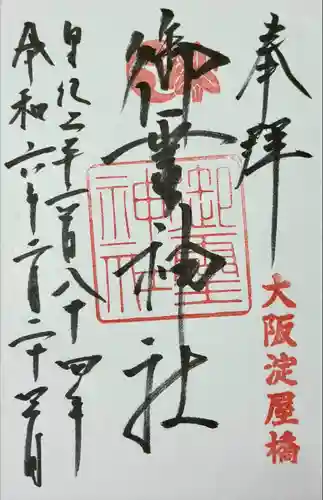 奉拝
大阪淀屋橋
御霊神社
御霊
神社
皇紀二千六百八十四年
令和六年二月二十日